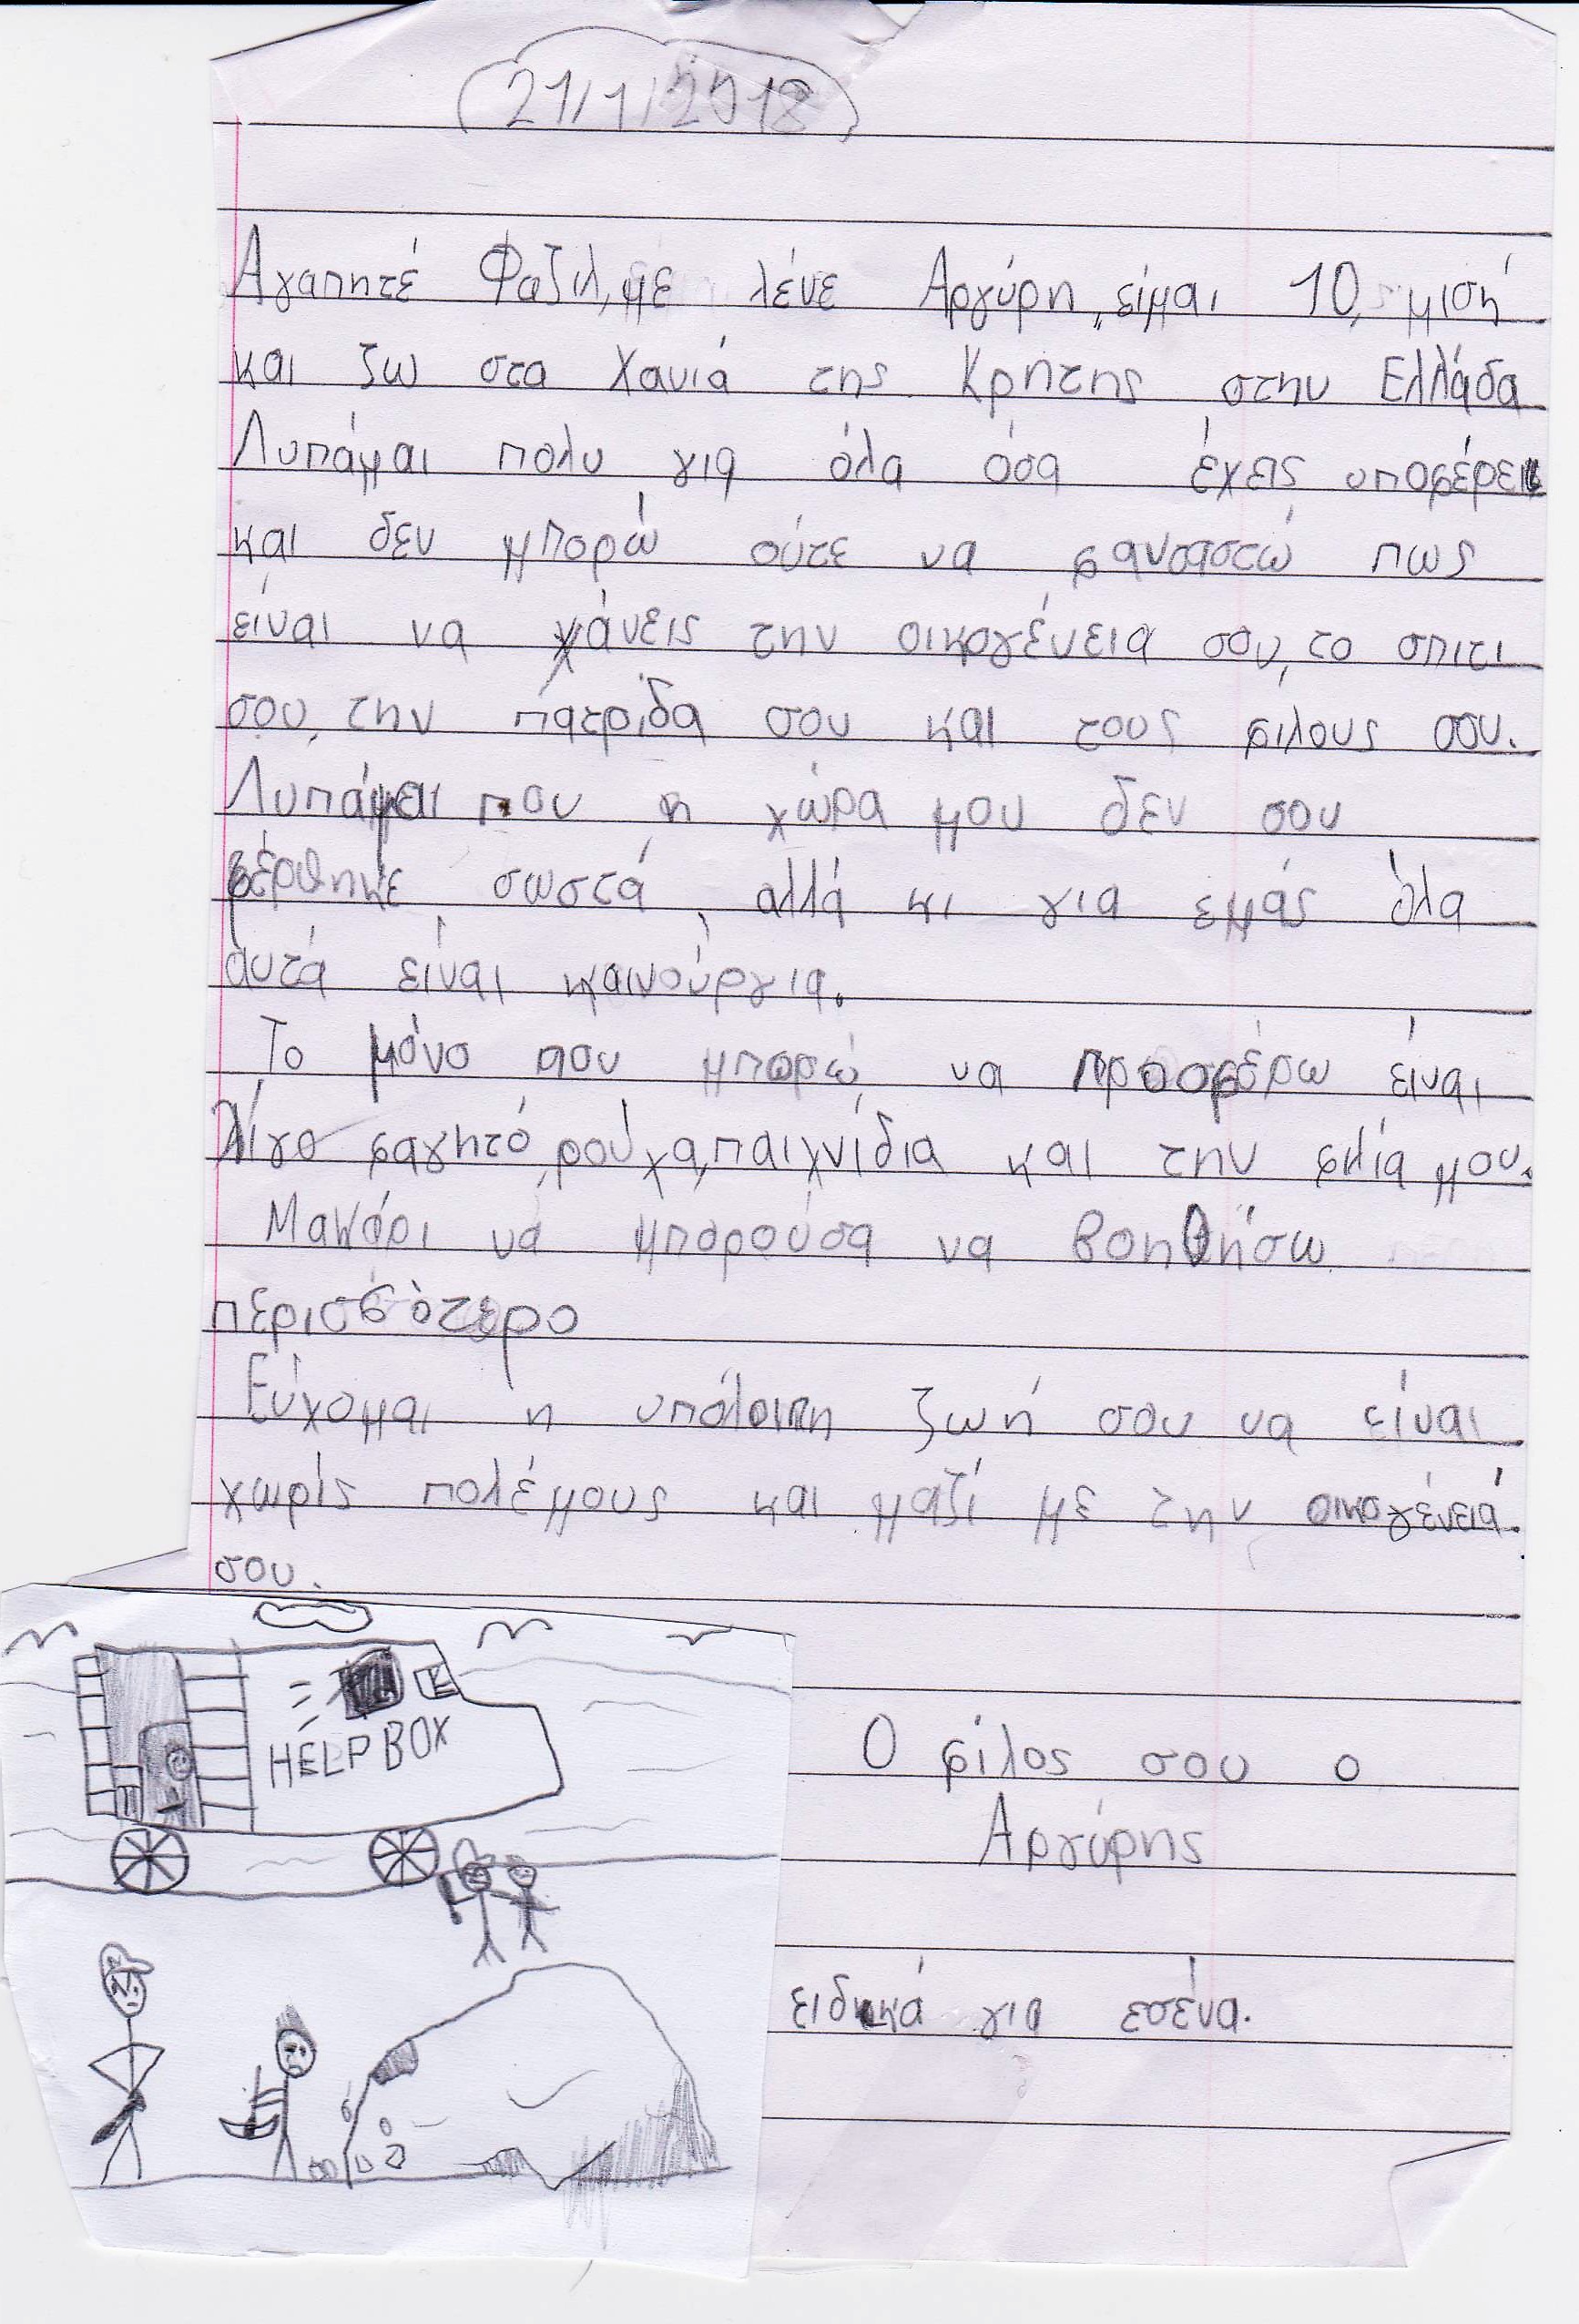 21/1/2018
Αγαπητέ Φαζιλ, με λένε Αργύρη, είμαι 10, μιση
και ζω στα Χανιά της Κρητης στην Ελλάδα
Λυπάμαι πολυ για όλα όσα έχεις υποφέρει
και δεν μπορώ ούτε να φανταστώ πως
είναι να χάνεις την οικογένεια σου, το σπιτι
σου, την πατρίδα σου και τους φιλους σου.
Λυπάμαι που η χώρα μου δεν σου
φέρθηκε σωστά, αλλά κι για εμάς όλα
αυτά είναι καινούργια.
Το μόνο που μπορώ να προσφέρω είναι
λίγο φαγητό, ρούχα, παιχνίδια και την φιλία μου.
Μακάρι να μπορούσα να βοηθήσω
περισσότερο
Εύχομαι η υπόλοιπη ζωή σου να είναι
χωρίς πολέμους και μαζί με την οικογένειά
σου.
HELP BOX
Ο φίλος σου ο
Αργύρης
ειδικά για εσένα.